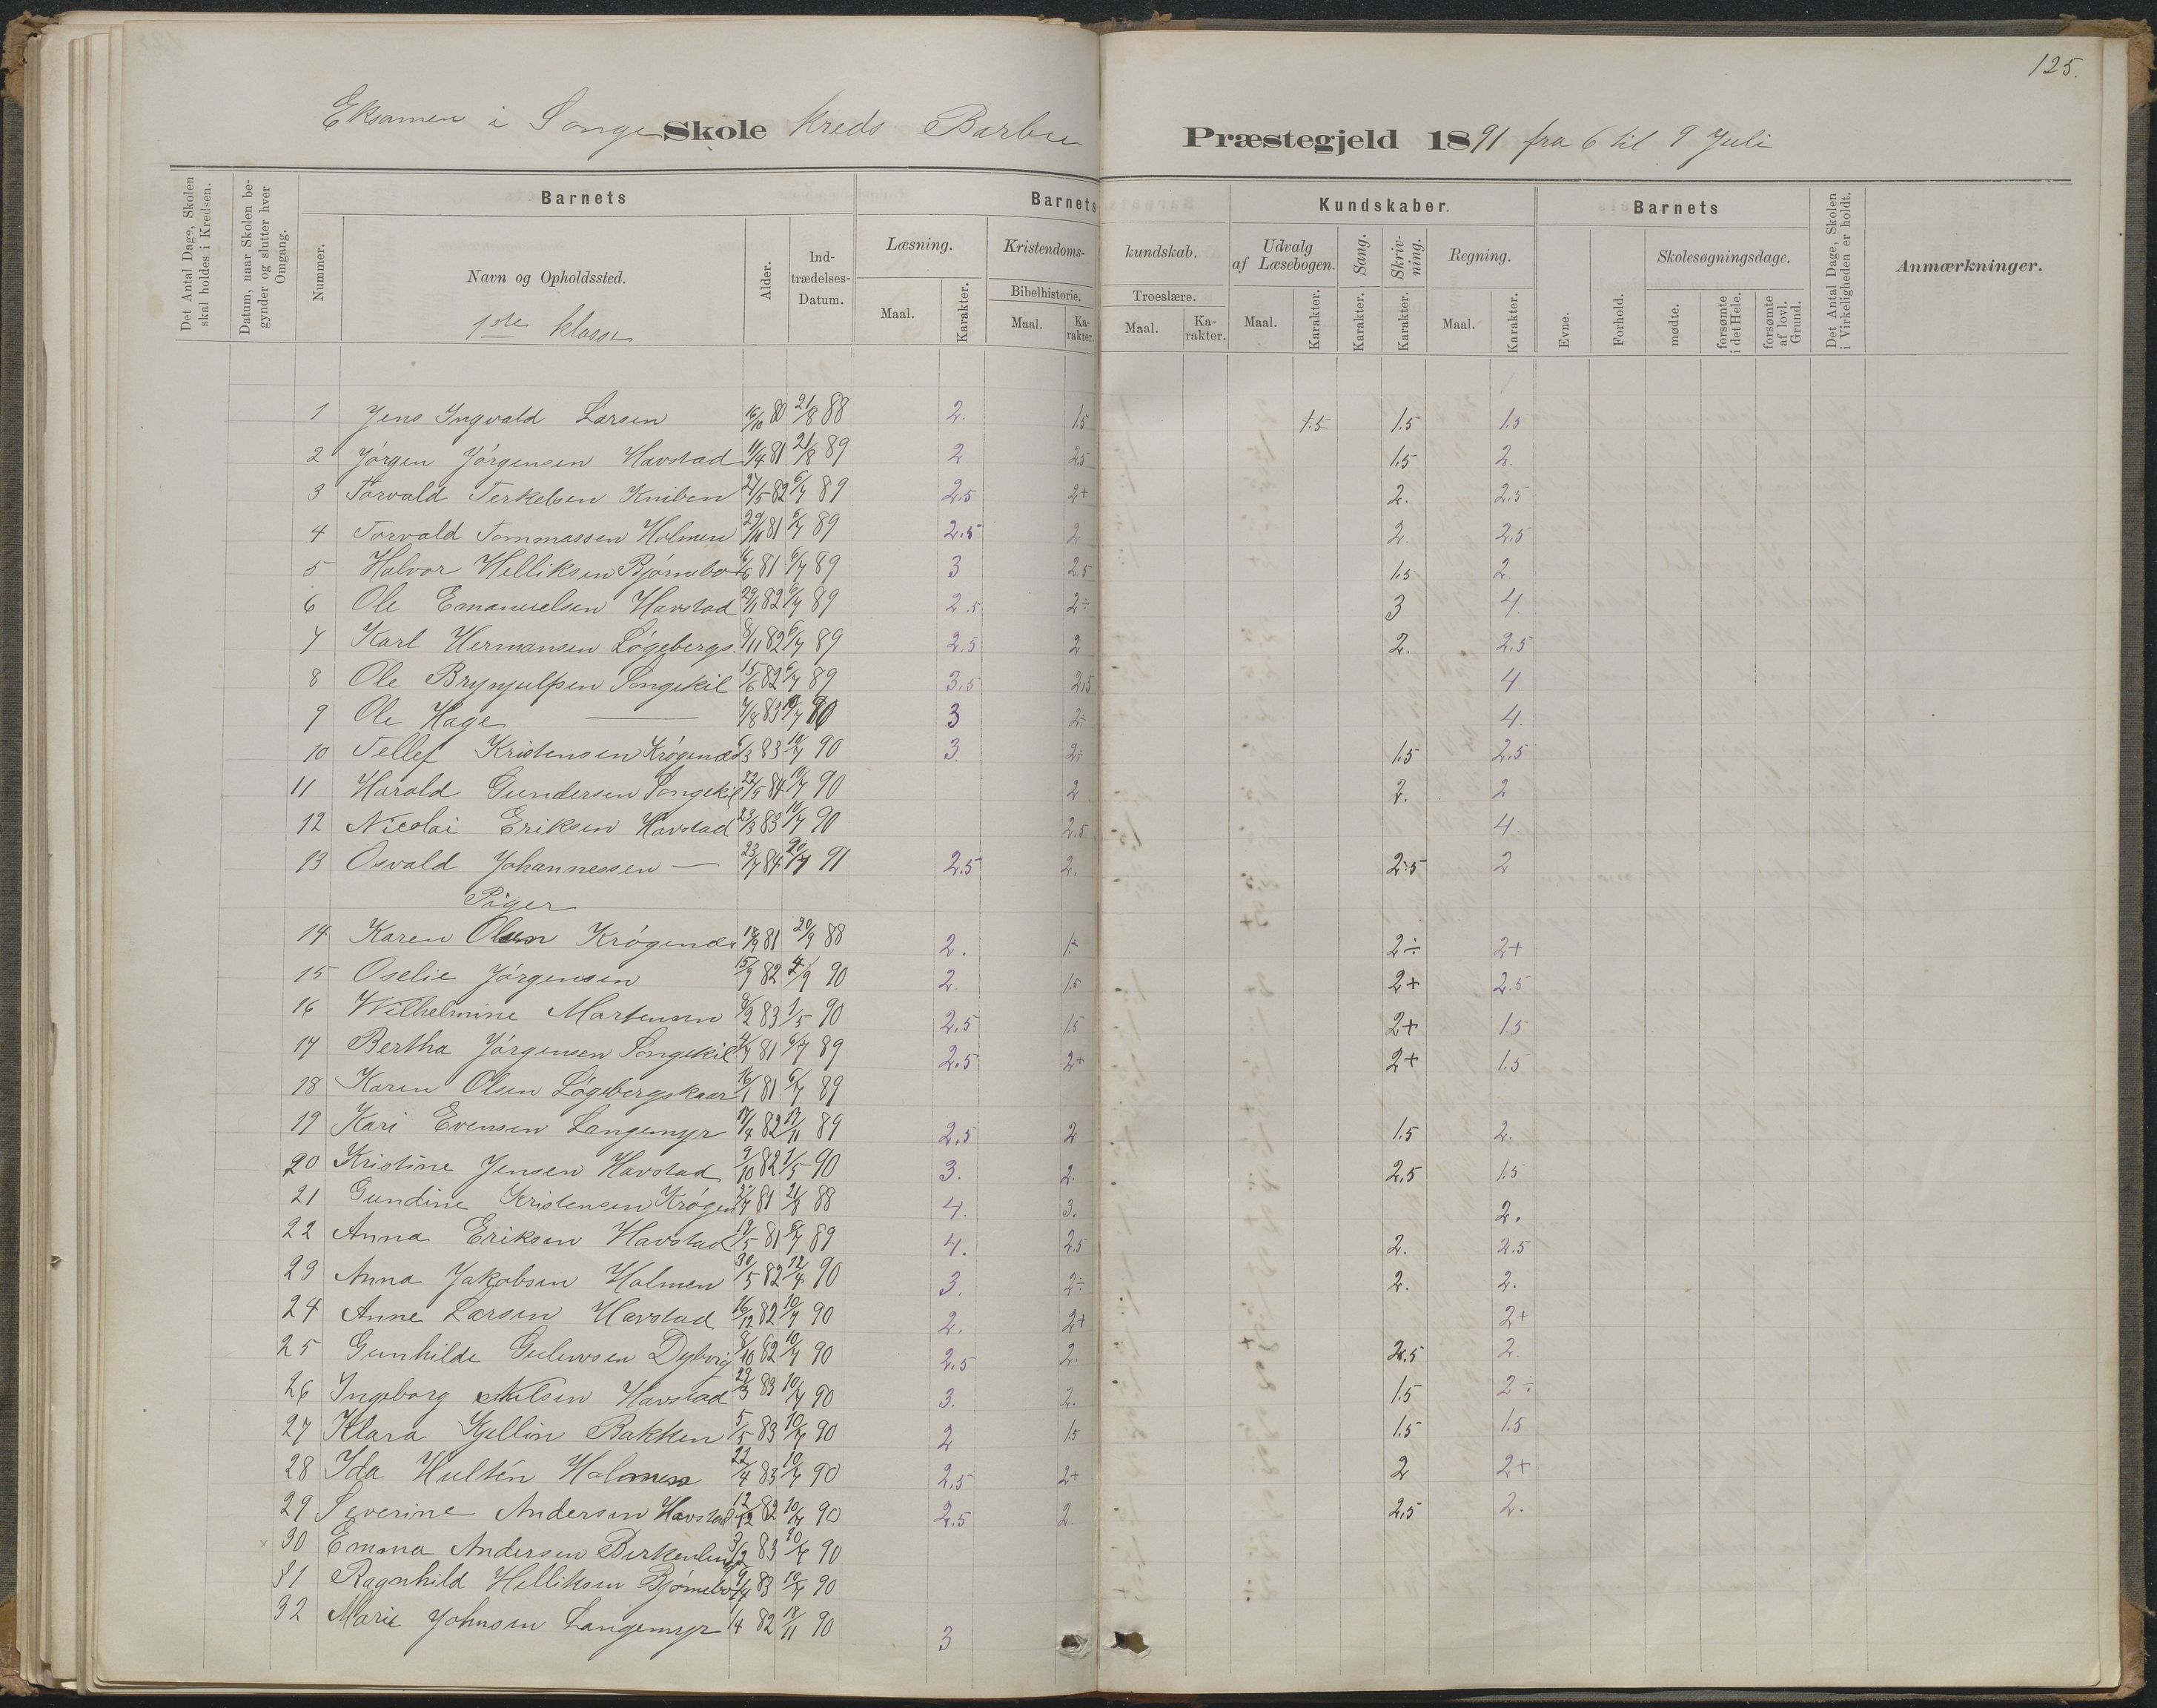 125.
Eksamen i Songe Skole kreds Barbu Præstegjeld 1891 fra 6 til 9 Juli
Det Antal Dage, Skolen skal holdes i Kredsen.
Datum, naar Skolen begynder og slutter hver Omgang.
Barnets
Nummer.
Navn og Opholdssted.
Alder.
Indtrædelses-Datum.
Barnets Kundskaber.
Læsning.
Maal. Karakter.
Kristendoms- kundskab.
Bibelhistorie. Troeslære.
Maal. Karakter. Maal. Karakter.
Udvalg af Læsebogen.
Maal. Karakter.
Sang. Karakter.
Skrivning. Karakter.
Regning.
Maal. Karakter.
Barnets
Evne. Forhold.
Skolesøgningsdage.
mødte. forsømte i det Hele. forsømte af lovl. Grund.
Det Antal Dage, Skolen i Virkeligheden er holdt.
Anmærkninger.
1ste klasse
1 Jens Ingvald Larsen 16/10 80 21/8 88 2. 1.5 1.5 1.5 1.5
2 Jørgen Jørgensen Havstad 11/4 81 21/8 89 2 2.5 1.5 2.
3 Torvald Terkelsen Kniben 27/5 82 6/7 89 2.5 2+ 2. 2.5
4 Torvald Tommassen Holmen 81 6/7 89 2.5 2 2. 2.5
5 Halvor Helliksen Bjørnebo 81 6/7 89 3 2.5 1.5 2
6 Ole Emanuelsen Havstad 29/11 82 6/7 89 2.5 2÷ 3 4
7 Karl Hermansen Løgebergs. 8/11 82 6/7 89 2.5 2 2. 2.5
8 Ole Brynjulfsen Songekil 15/6 82 6/7 89 3.5 2.5 4.
9 Ole Hage — 7/8 83 10/7 90 3 2÷ 4
10 Tellef Kristensen Krøgenæs 6/3 83 10/7 90 3. 2÷ 1.5 2.5
11 Harald Gundersen Songekil 22/5 84 10/7 90 2 2. 2
12 Nicolai Eriksen Havstad 23/3 83 10/7 90 2.5 4
13 Osvald Johannessen — 23/7 84 91 2.5 2. 2.5 2
Piger
14 Karen Olsen Krøgenæs 81 20/9 88 2. 1÷ 2÷ 2+
15 Oselie Jørgensen 15/9 82 4/9 90 2. 1.5 2+ 2.5
16 Wilhelmine Martensen 8/2 83 1/5 90 2.5 1.5 2+ 1.5
17 Bertha Jørgensen Songekil 81 6/7 89 2.5 2+ 2+ 1.5
18 Karen Olsen Løgebergskaar 16/1 81 6/7 89
19 Kari Evensen Langemyr 17/4 82 17/11 89 2.5 2 1.5 2.
20 Kristine Jensen Havstad 9/10 82 1/5 90 3. 2. 2.5 1.5
21 Gundine Kristensen Krøgen 81 21/8 88 4. 3. 2.
22 Anna Eriksen Havstad 19/5 81 6/7 89 4. 2.5 2. 2.5
23 Anna Jakobsen Holmen 30/5 82 12/4 90 3. 2÷ 2. 2.
24 Anne Larsen Havstad 16/12 82 10/7 90 2. 2+ 2+
25 Gunhilde Gulevsen Dybvig 8/10 82 10/7 90 2.5 2. 2.5 2.
26 Ingeborg Nilsen Havstad 29/3 83 10/7 90 3. 2. 1.5 2÷
27 Klara Kjellin Bakken 5/5 83 10/7 90 2 1.5 1.5 1.5
28 Ida Hultén Holmen 22/4 83 10/7 90 2.5 2+ 2 2+
29 Severine Andersen Havstad 12/12 82 10/7 90 2.5 2. 2.5 2.
30 Emma Andersen Birkenlund 3/2 83 10/7 90
31 Ragnhild Helliksen Bjørnebo 83 10/7 90
32 Marie Johnsen Langemyr 1/4 82 18/11 90 3